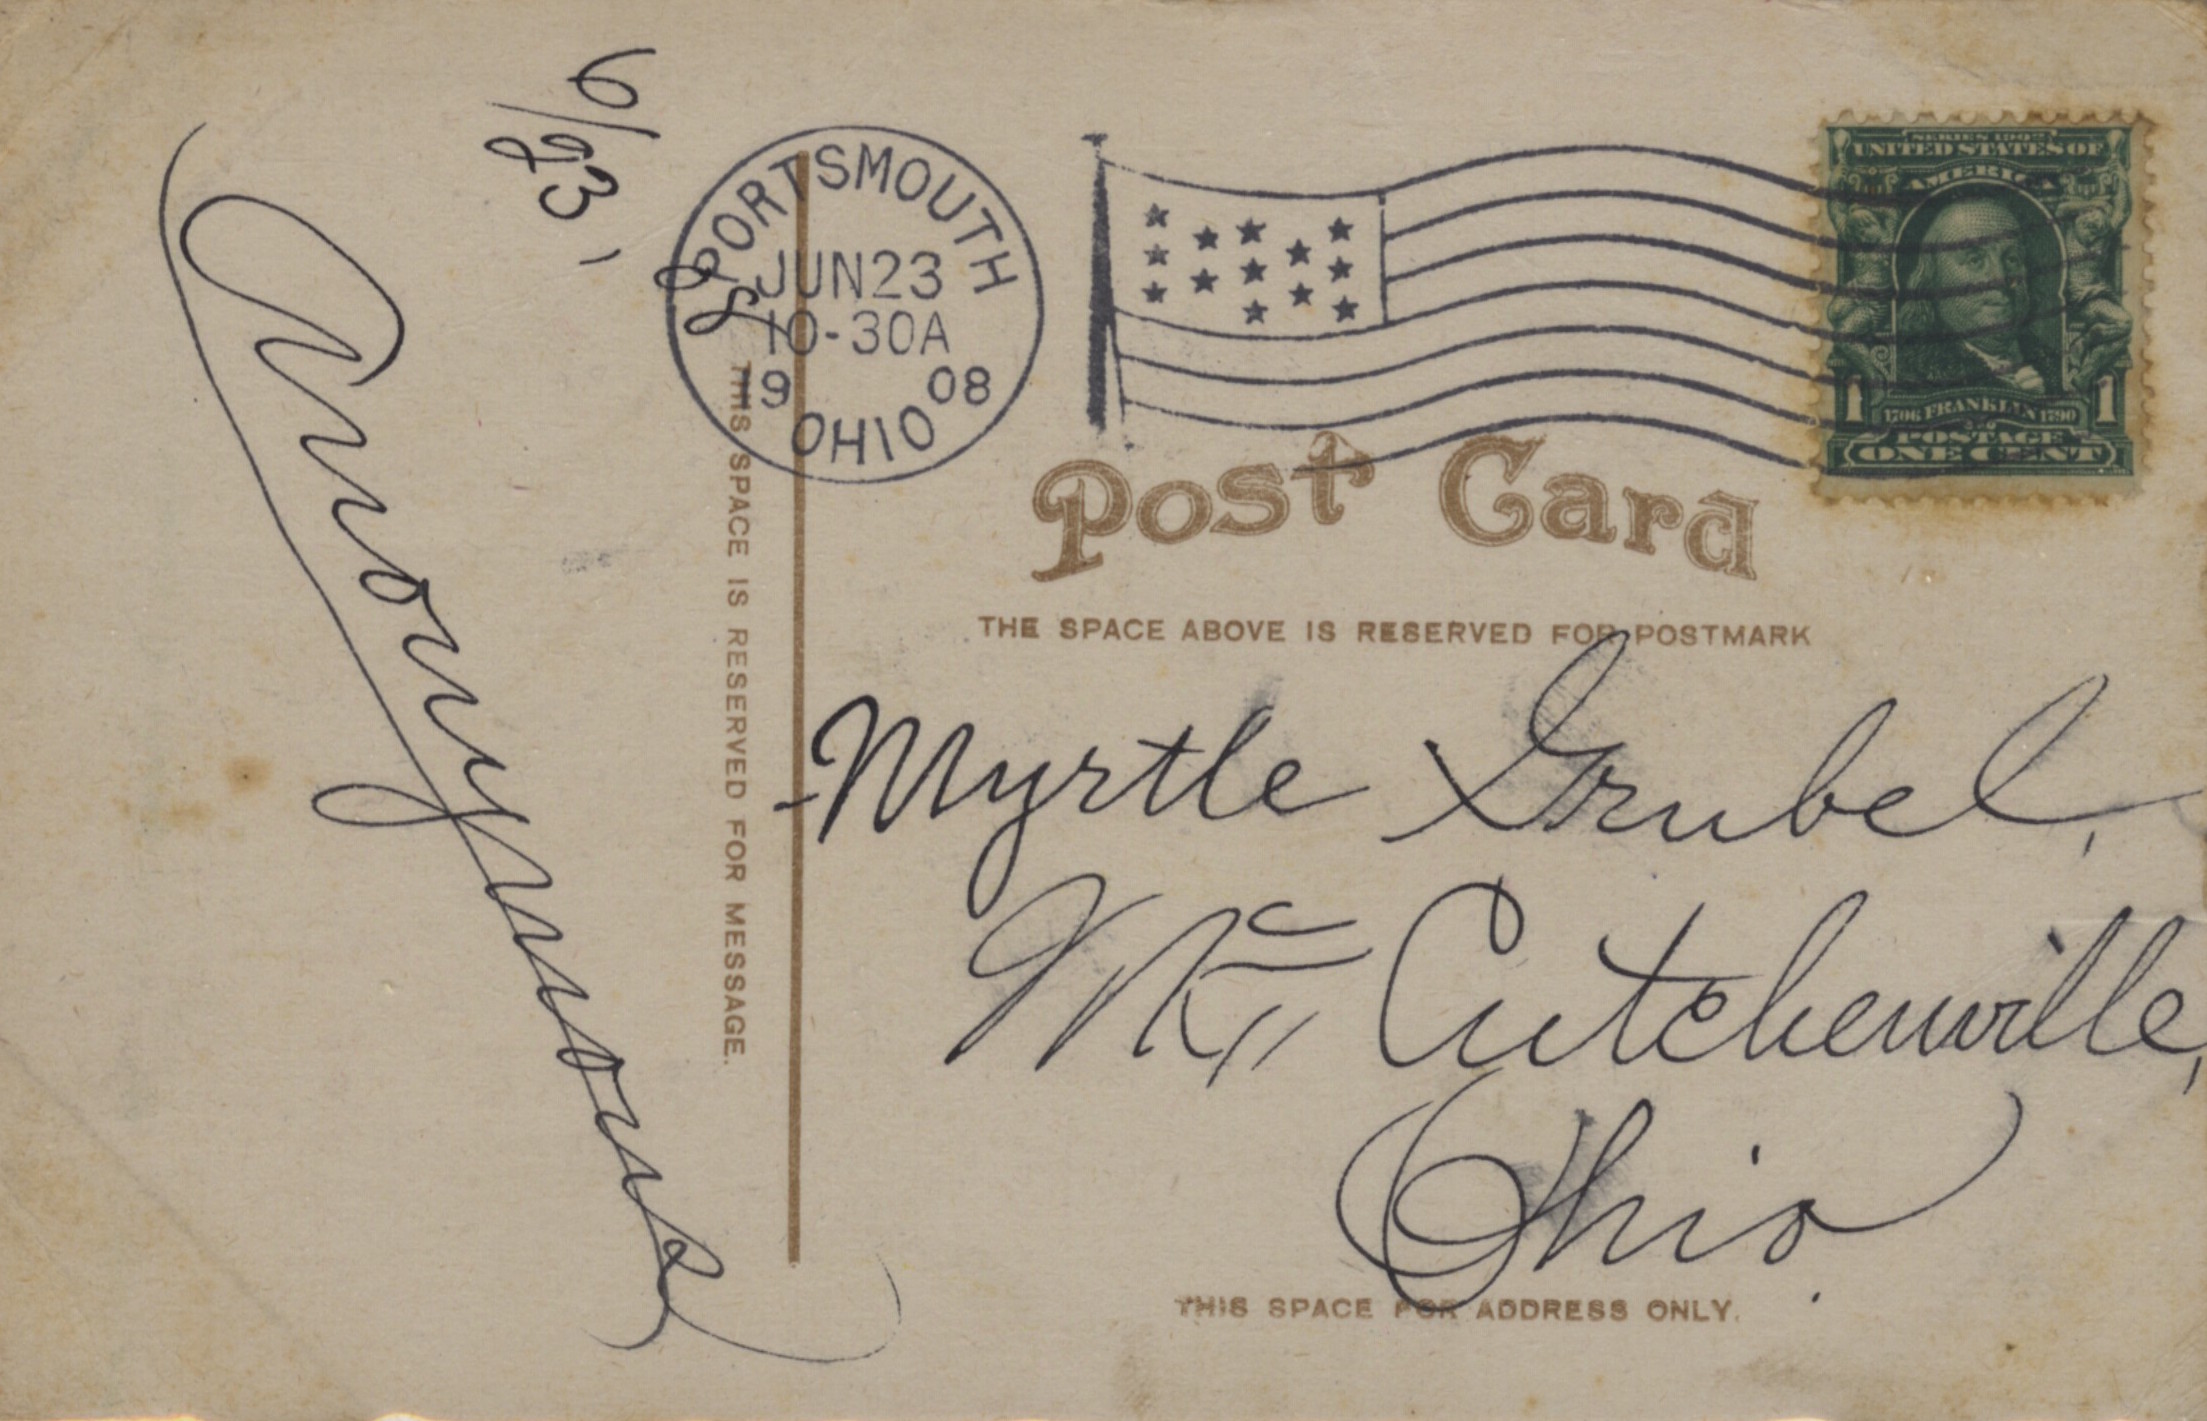 6/23, 08
Anonymous
PORTSMOUTH
JUN 23
10-30A
1908
OHIO
SERIES 1902
UNITED STATES OF
AMERICA
1 1706 FRANKLIN 1790 1
POSTAGE
ONE CENT
Post Card
THE SPACE ABOVE IS RESERVED FOR POSTMARK
THIS SPACE IS RESERVED FOR MESSAGE.
Myrtle Grubel,
Mc Cutchenville,
Ohio.
THIS SPACE FOR ADDRESS ONLY.